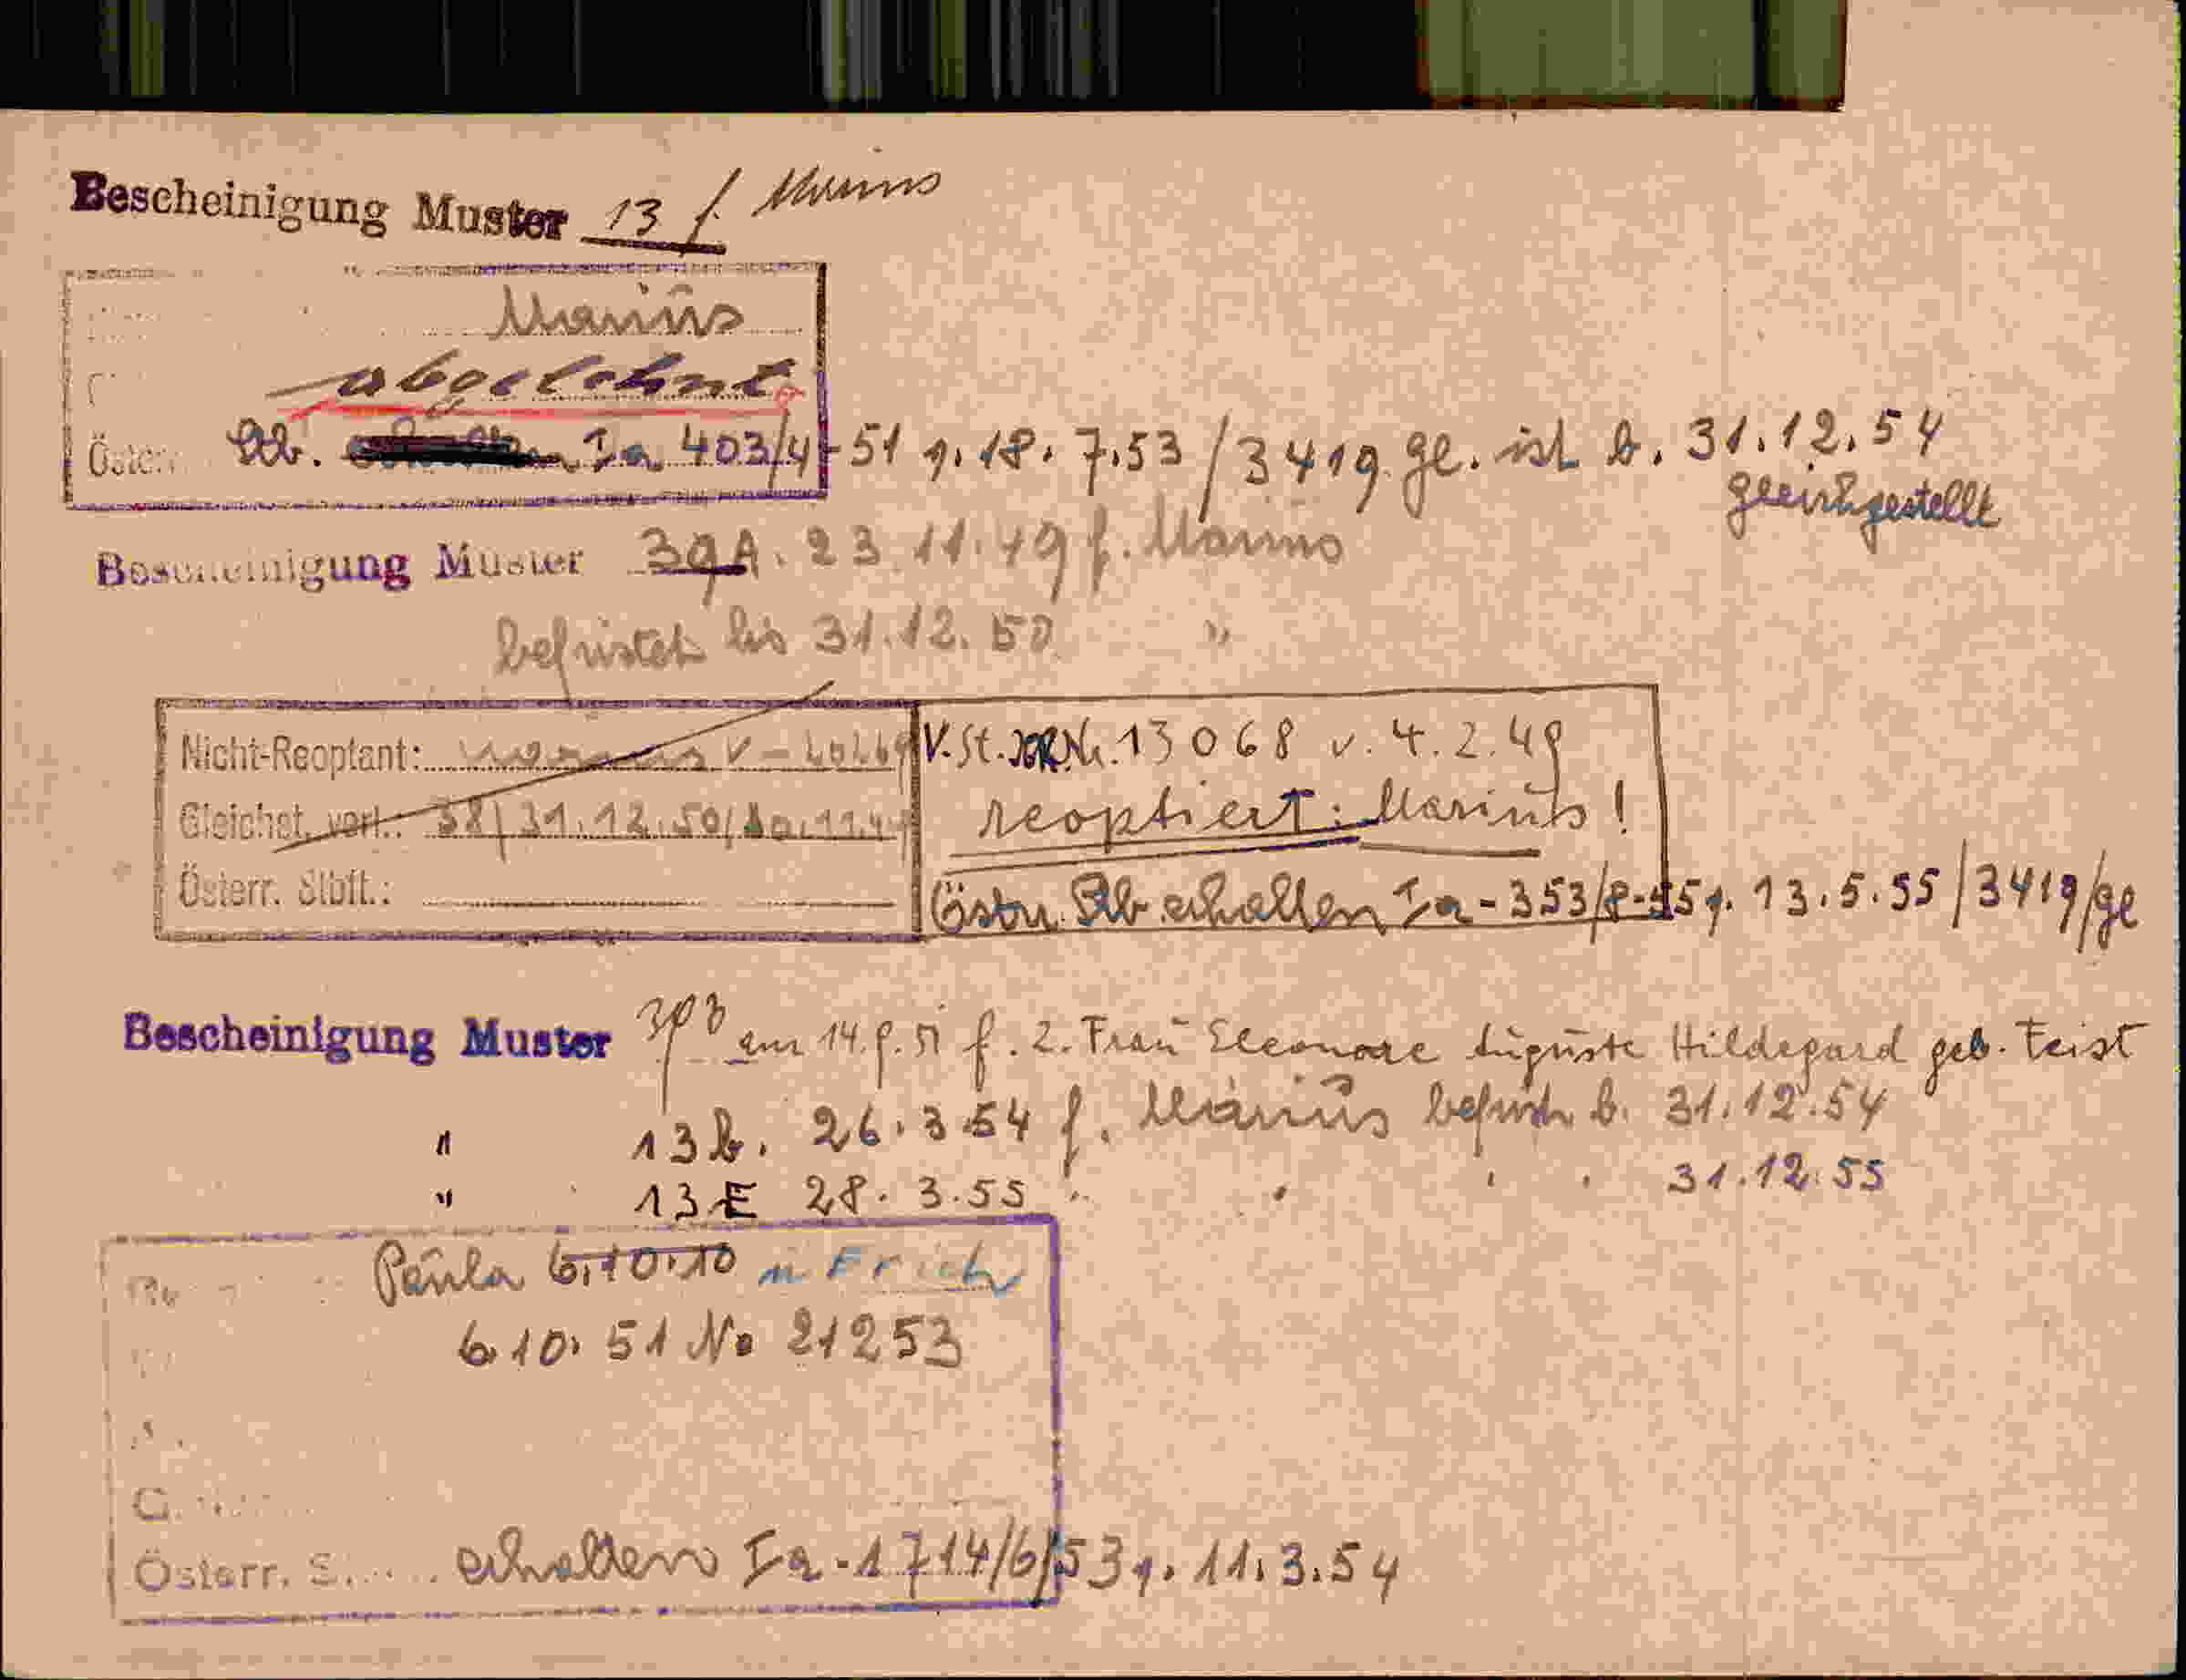 Bescheinigung Muster 13 f. Marius
Marius
abgelehnt
Österr. Stb. Ia 403/4-51 v. 18. 7.53 / 3419. ge. ist b. 31.12.54
gleichgestellt
Bescheinigung Muster 39A. 23.11.49 f. Marius
befristet bis 31.12.50 "
Nicht-Reoptant: Marius V-
Gleichst. verl.: 38/31.12.50/
Österr. Stbft.:
V.St. Nr. 13068 v. 4.2.49
reoptiert: Marius!
Östr. Stb erhalten Ia-353/8-55 v. 13.5.55/3419/ge
Bescheinigung Muster am 14.8.51 f. 2. Frau Eleonore Auguste Hildegard geb. Feist
" 13b. 26.3.54 f. Marius befrist b. 31.12.54
" 13E 28.3.55 " " " " 31.12.55
Paula 6.10.10 u Erich
6.10.51 No 21253
Österr. S. erhalten Ia-1714/6/53 v. 11.3.54